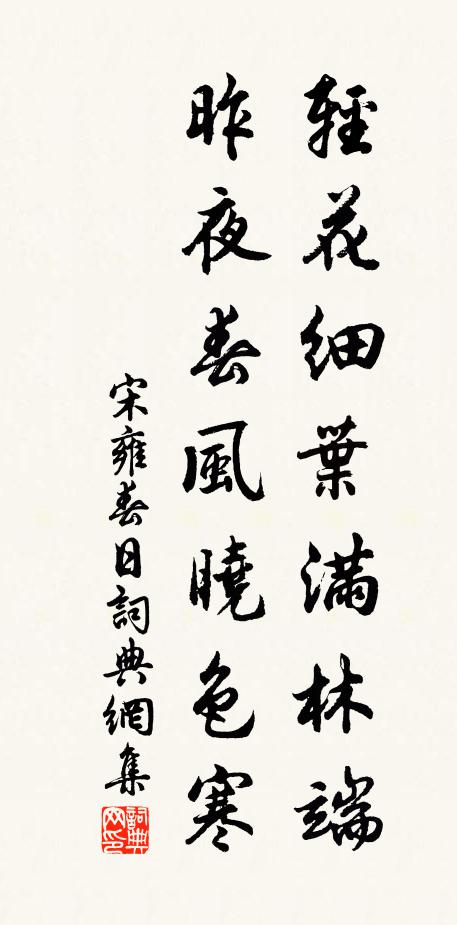 輕花細葉滿林端
昨夜春風曉色寒
宋雍春日詞典網集
詞典網印